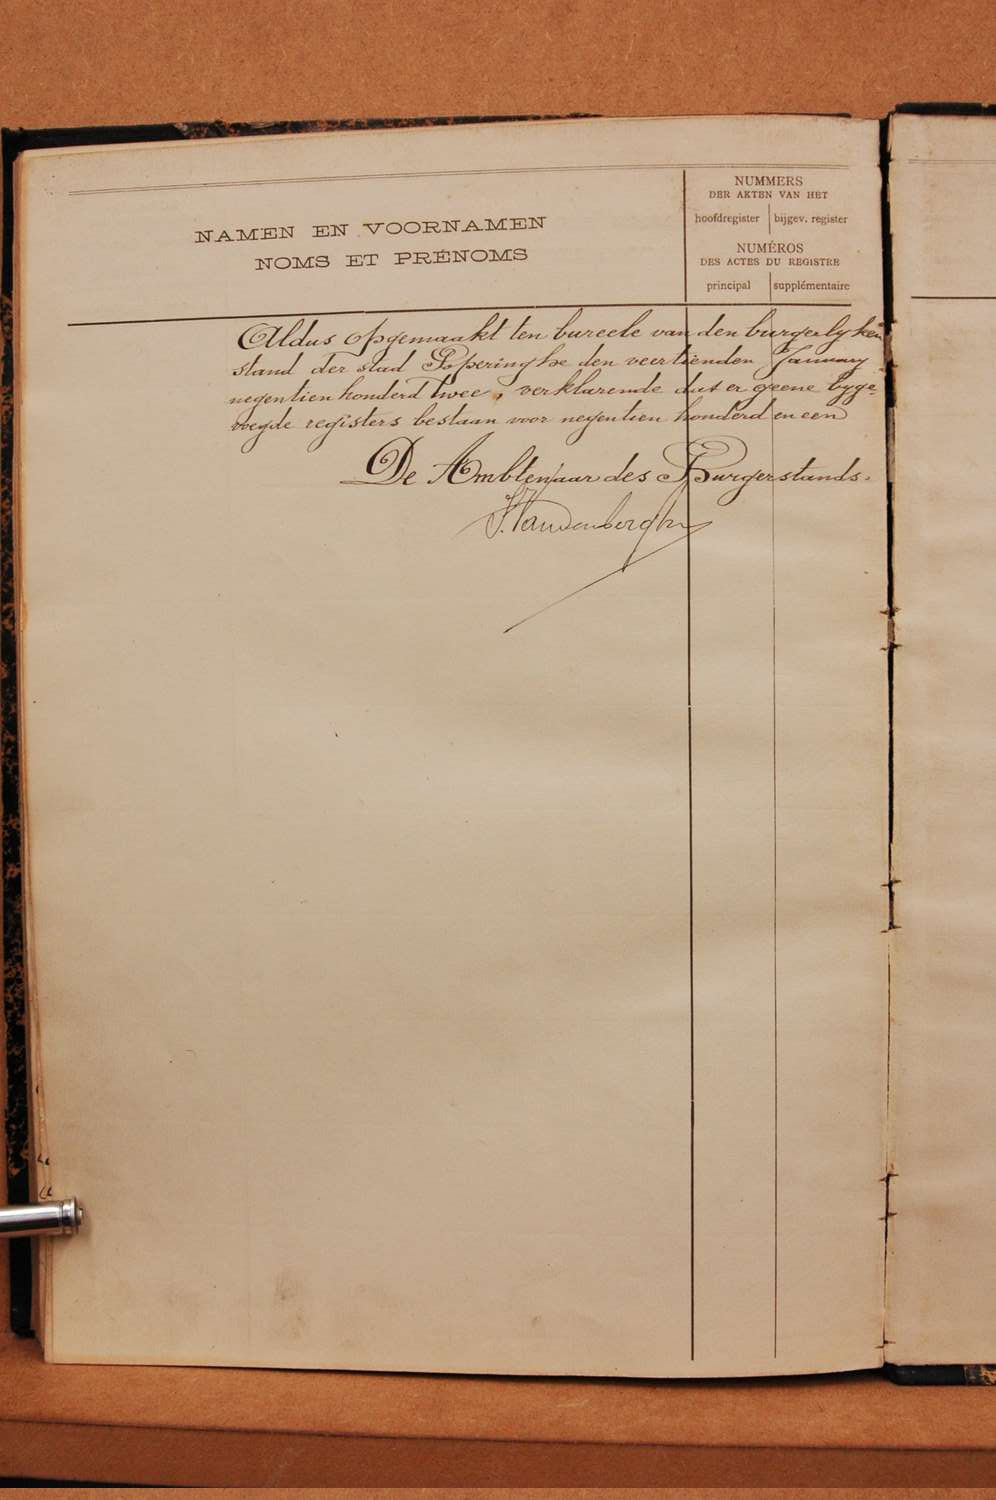 NAMEN EN VOORNAMEN
NOMS ET PRÉNOMS
NUMMERS
DER AKTEN VAN HET
hoofdregister bijgev. register
NUMÉROS
DES ACTES DU REGISTRE
principal supplémentaire
Aldus opgemaakt ten bureele van den burgerlyken
stand der stad Poperinghe den veertienden January
negentien honderd twee, verklarende dat er geene byge-
voegde registers bestaan voor negentien honderd en een
De Ambtenaar des Burgerstands.
Vandenberghe